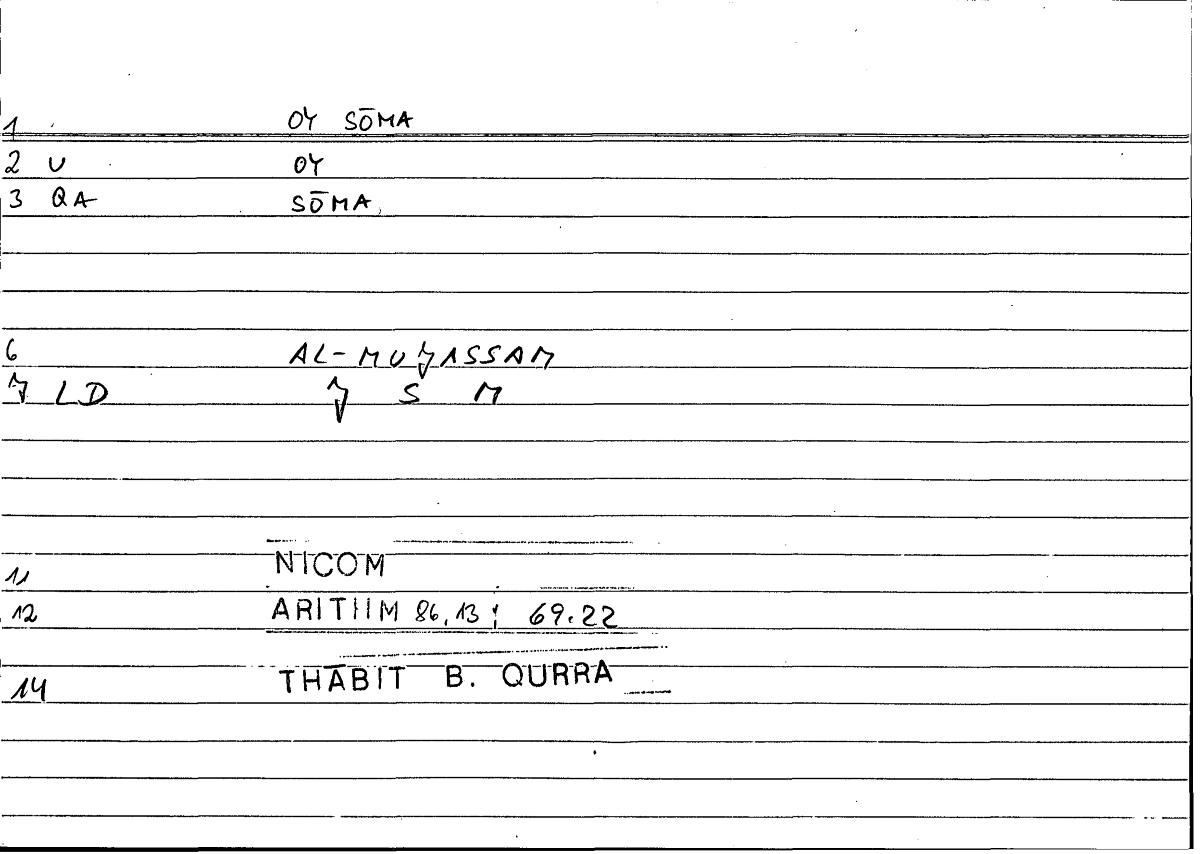 1 OY SŌMA
2 U OY
3 QA SŌMA
6 AL-MUǦASSAM
7 LD Ǧ S M
11 NICOM
12 ARITIIM 86,13; 69.22
14 THĀBIT B. QURRA